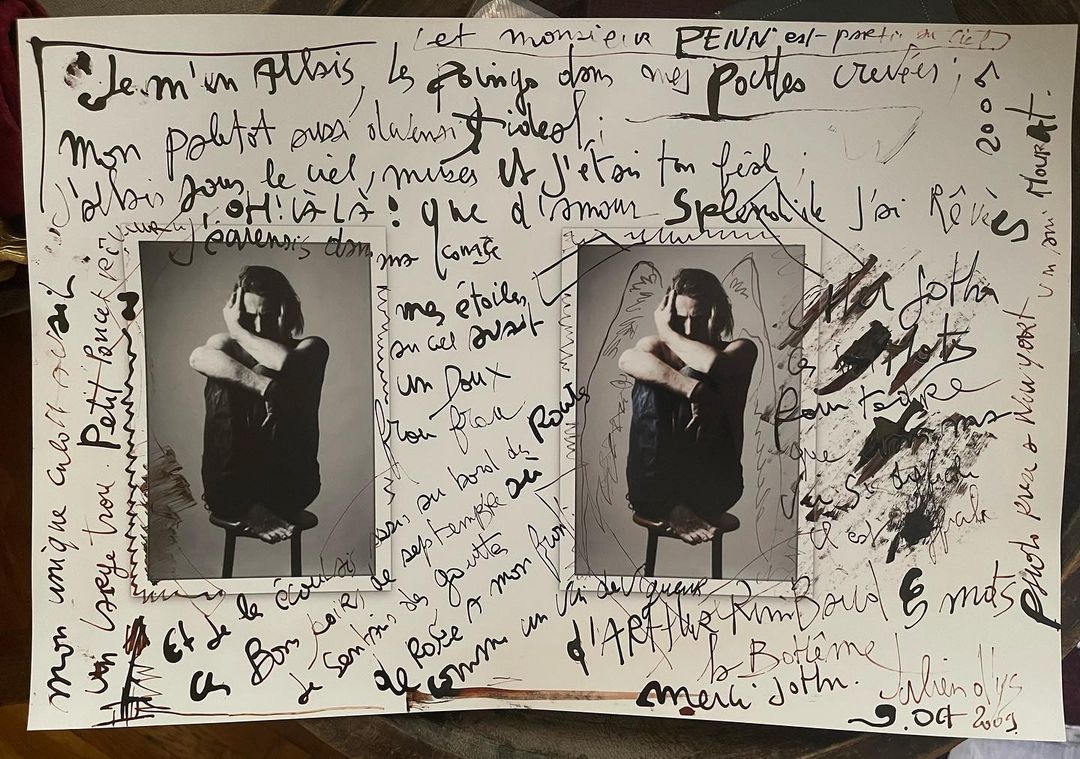 (et monsieur PENN est-parti au ciel)
Je m'en Allais, les poings dans mes Poches crevées ;
mon paletot aussi devenait ideal ;
J'allais sous le ciel, muse et J'étais ton féal ;
OH! LÀ LÀ ! que d'amour Splendide J'ai Rêvés
mon unique culotte avait
un large trou. Petit Poucet Rêveur
J'égrenais dans ma course
mes étoiles
au ciel avait
un Doux
frou frou
assis au bord des Routes
Et Je les écoutais
ces Bons soirs de septembre où
Je sentais des gouttes
de Rosée A mon front
comme un vin de vigueur
Cher John
les mots
pour tendre
que
se
d'ARTHUR RimBaud
la Bohême
les mots
merci John.
Julien d'ys
9. OCt 2009
Photo prise a New York
un ami Mourat.
2005